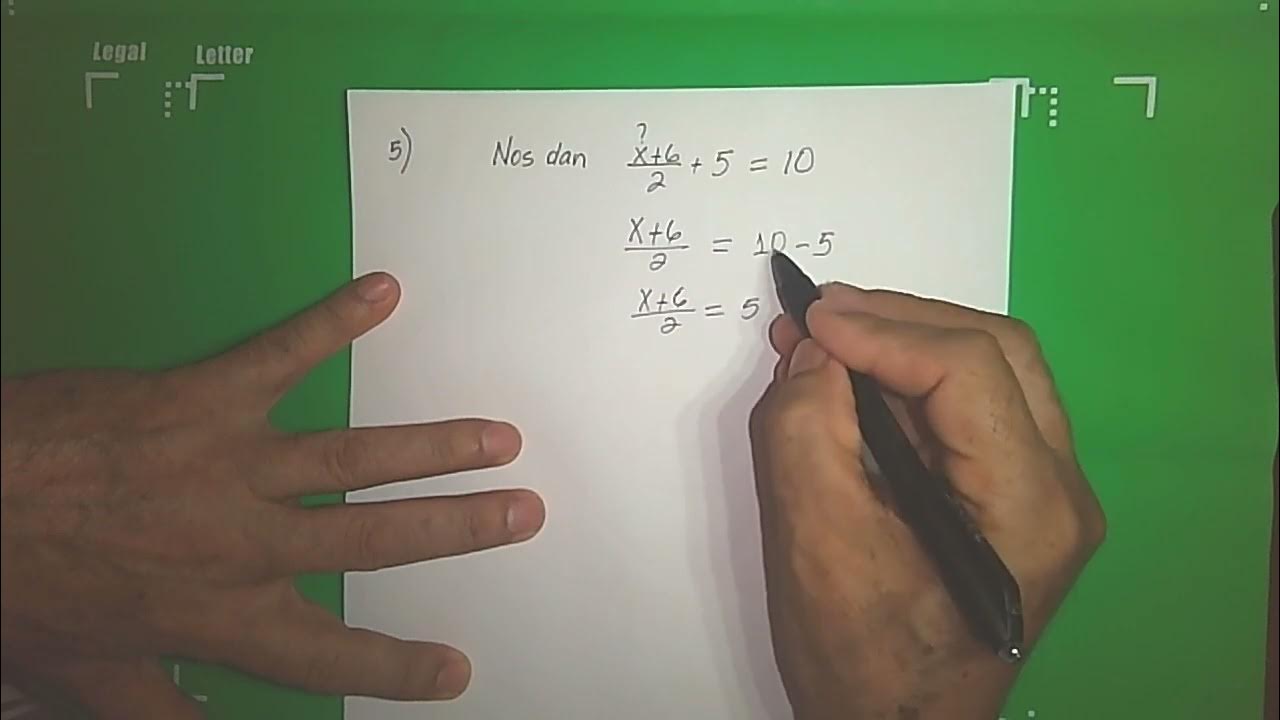 Legal Letter
5) Nos dan x+6/2 + 5 = 10
?
x+6/2 = 10-5
x+6/2 = 5